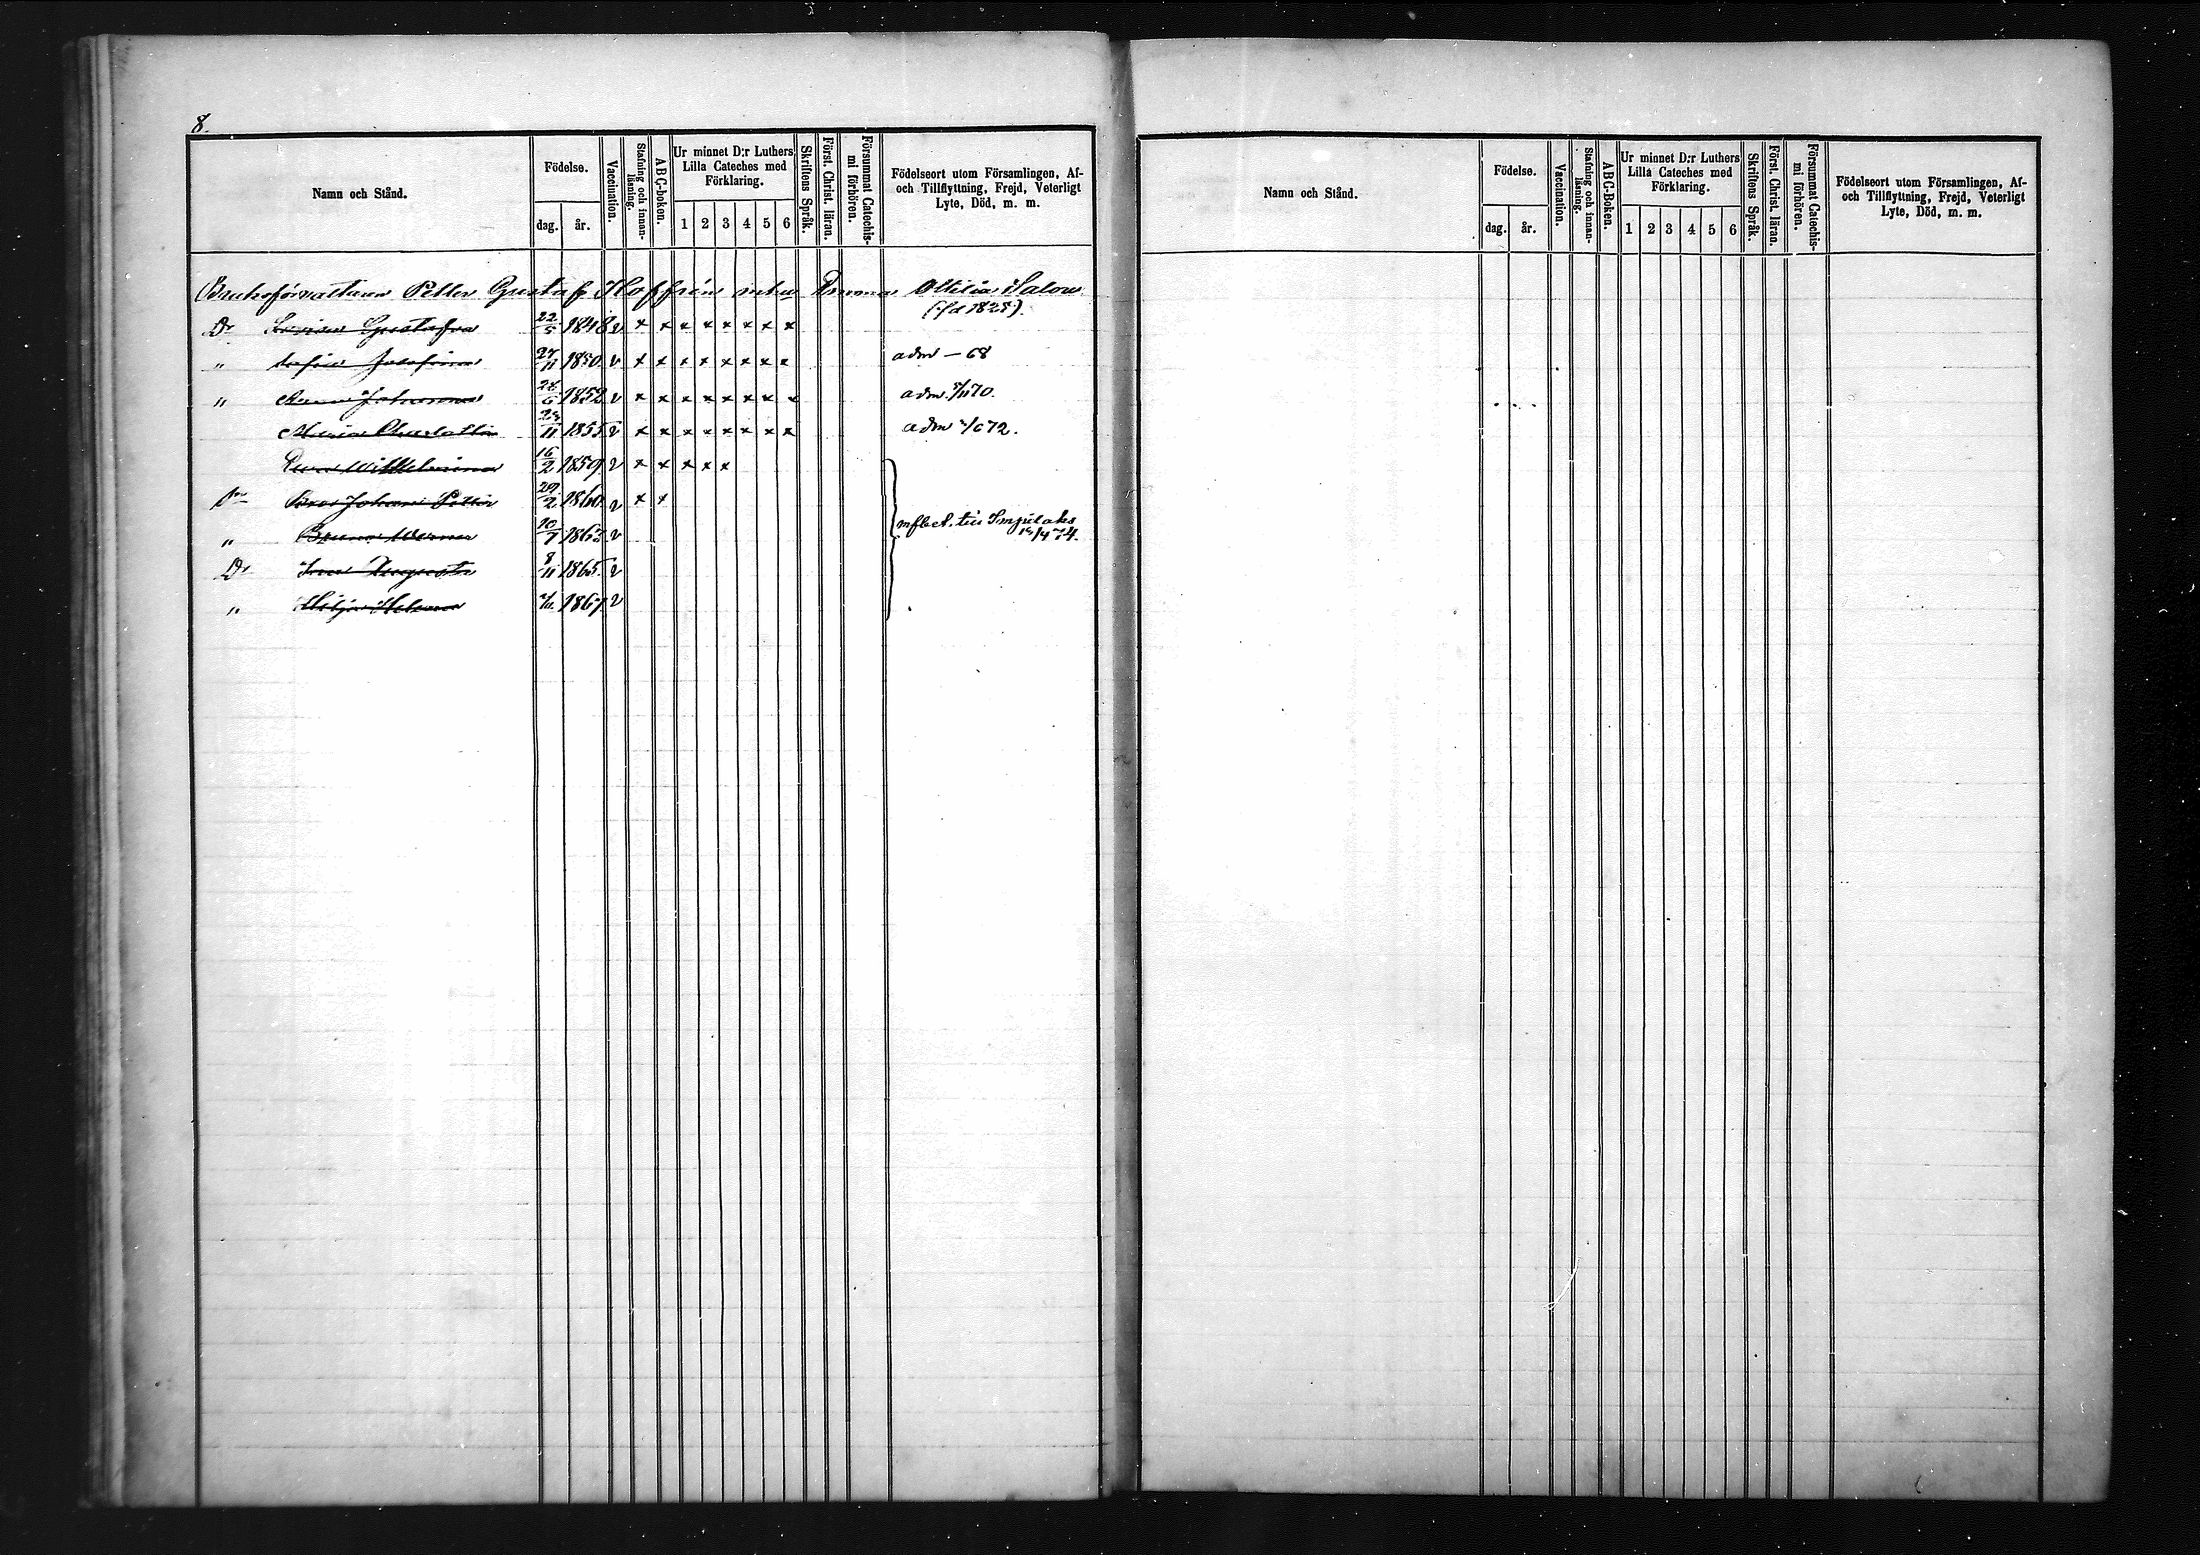 8.
Namn och Stånd. Födelse. dag. år. Vaccination. Stafning och innanläsning. ABC-boken. Ur minnet D:r Luthers Lilla Cateches med Förklaring. 1 2 3 4 5 6 Skriftens Språk. Först. Christ. läran. Försummat Catechismi förhören. Födelseort utom Församlingen, Af- och Tillflyttning, Frejd, Veterligt Lyte, Död, m. m.
Bruksförvaltaren Petter Gustaf Hoffrén m hu Emma Ottilia Salon
(fd 1825).
Dr Gustafva 22/5 1848 v x x x x x x x x
" Sofia Josefina 27/11 1850 v x x x x x x x x adm — 68
" Johanna 1852 v x x x x x x x x adm. 70.
Maria Charlotta 1855 v x x x x x x x x adm 72.
Wilhelmina 16/2 1859 v x x x x x
Sn Johan Petter 29/2 1860 v x x
" Bruno Werner 10/7 1863 v mflect. till Impilaks 74.
Dr Augusta 8/11 1865 v
" Hilja Helena 1867 v
Namn och Stånd. Födelse. dag. år. Vaccination. Stafning och innanläsning. ABC-Boken. Ur minnet D:r Luthers Lilla Cateches med Förklaring. 1 2 3 4 5 6 Skriftens Språk. Först. Christ. läran. Försummat Catechismi förhören. Födelseort utom Församlingen, Af- och Tillflyttning, Frejd, Veterligt Lyte, Död, m. m.